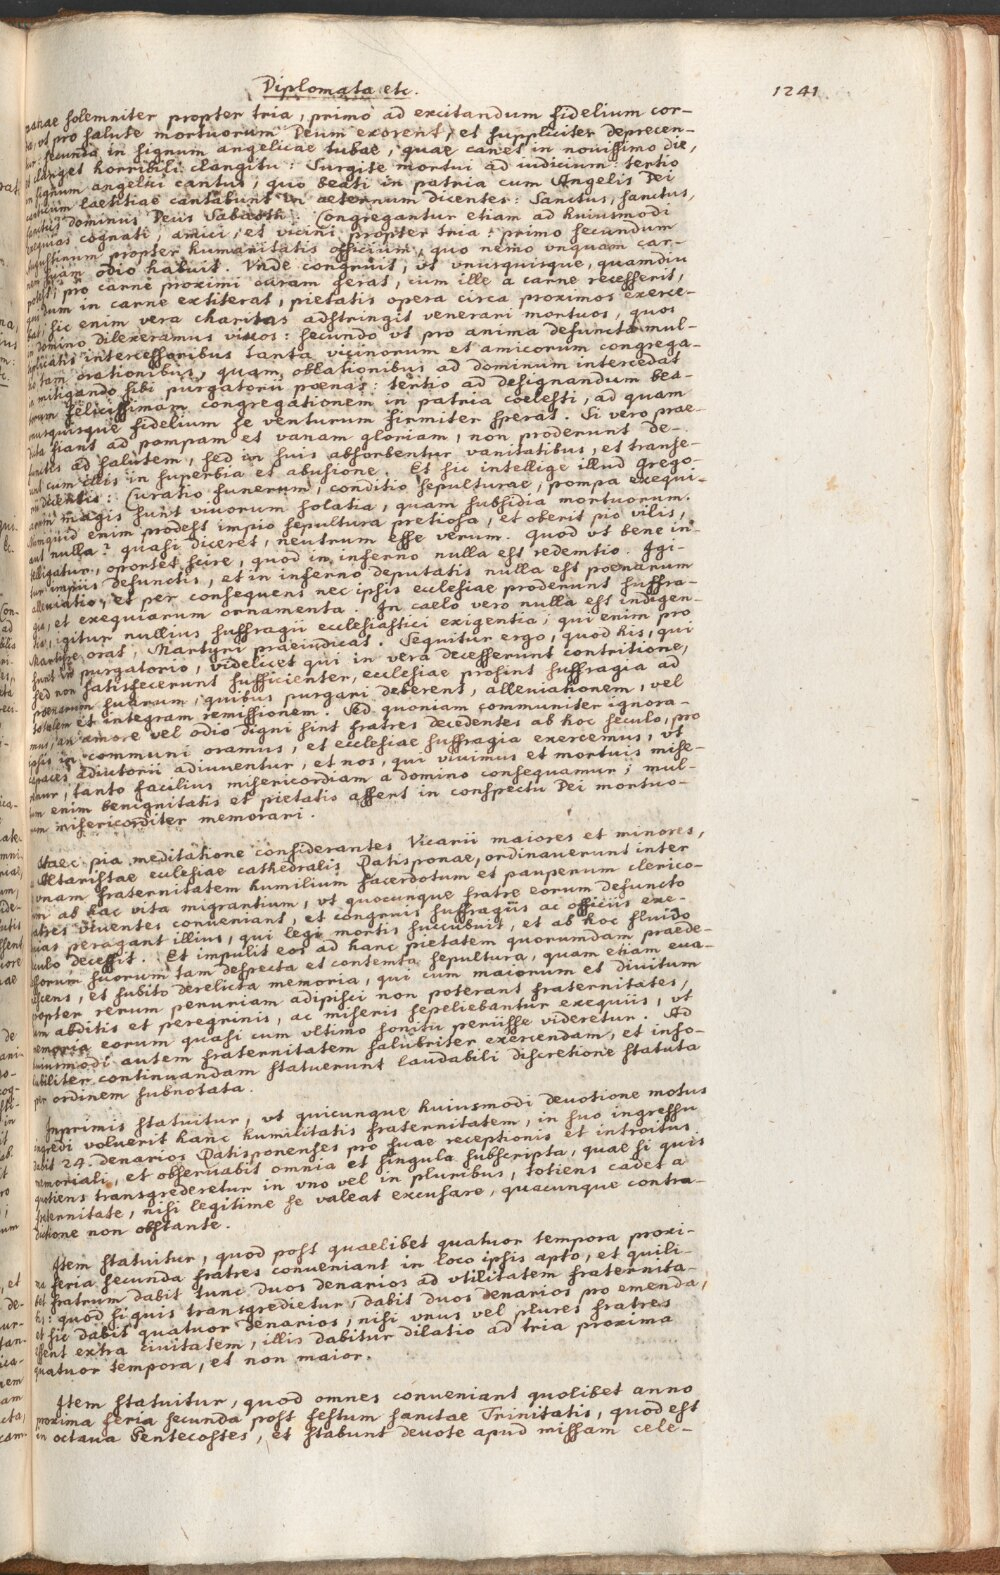 Diplomata etc.
1241
panae solemniter propter tria, primo ad excitandum fidelium cor-
da, ut pro salute mortuorum Deum exorent, et suppliciter deprecen-
tur: secunda in signum angelicae tubae, quae canet in novissimo die,
et clanget horribili clangitu: Surgite mortui ad iudicium: tertio
in signum angelici cantus, quo beati in patria cum Angelis Dei
canticum laetitiae cantabunt in aeternum dicentes: Sanctus, sanctus,
sanctus dominus Deus Sabaoth. Congregantur etiam ad huiusmodi
exequias cognati, amici, et vicini propter tria: primo secundum
Augustinum propter humanitatis officium, quo nemo vnquam car-
nem suam odio habuit. Vnde congruit, vt vnusquisque, quamdiu
potest, pro carne proximi curam gerat, cum ille a carne recesserit,
qui dum in carne extiterat, pietatis opera circa proximos exerce-
bat, sic enim vera charitas adstringit venerari mortuos, quos
in Domino dilexeramus vivos: secundo vt pro anima defuncta mul-
tiplicatis intercessoribus tanta vicinorum et amicorum congrega-
tio tam orationibus, quam oblationibus ad dominum intercedat
in mitigando sibi purgatorii poenas: tertio ad designandum bea-
torum felicissimam congregationem in patria coelesti, ad quam
vnusquisque fidelium se venturum firmiter sperat. Si vero prae-
dicta fiant ad pompam et vanam gloriam, non proderunt de-
functis ad salutem, sed in suis absorbentur vanitatibus, et transe-
unt cum illis in superbia et abusione. Et sic intellige illud Grego-
rii dicentis: Curatio funerum, conditio sepulturae, pompa exequi-
arum magis sunt vivorum solatia, quam subsidia mortuorum.
Numquid enim prodest impio sepultura pretiosa, et oberit pio vilis,
aut nulla? quasi diceret, neutrum esse verum. Quod vt bene in-
telligatur, oportet scire, quod in inferno nulla est redemtio. Igi-
tur impiis defunctis, et in inferno deputatis nulla est poenarum
alleviatio, et per consequens nec ipsis ecclesiae proderunt suffra-
gia, et exequiarum ornamenta. In caelo vero nulla est indigen-
tia, igitur nullius suffragii ecclesiastici exigentia; qui enim pro
Martyre orat, Martyri praeiudicat. Sequitur ergo, quod his, qui
sunt in purgatorio, videlicet qui in vera decesserunt contritione,
sed non satisfecerunt sufficienter, ecclesiae prosint suffragia ad
poenarum suarum, quibus purgari deberent, alleviationem, vel
totalem et integram remissionem. Sed quoniam communiter ignora-
mus, an amore vel odio digni sint fratres decedentes ab hoc seculo, pro
ipsis in communi oramus, et ecclesiae suffragia exercemus, vt
capaces adiutorii adiuventur, et nos, qui vivimus et mortuis mise-
remur, tanto facilius misericordiam a domino consequamur; mul-
tum enim benignitatis et pietatis affert in conspectu Dei mortuo-
rum misericorditer memorari.
Haec pia meditatione considerantes Vicarii maiores et minores,
et Altaristae ecclesiae cathedralis Ratisponae, ordinaverunt inter
se vnam fraternitatem humilium sacerdotum et pauperum clerico-
rum ab hac vita migrantium, vt quocunque fratre eorum defuncto
fratres viventes conveniant, et congruis suffragiis ac officiis exe-
quias peragant illius, qui legi mortis succubuit, et ab hoc fluido
seculo decessit. Et impulit eos ad hanc pietatem quorumdam praede-
cessorum suorum tam despecta et contemta sepultura, quam etiam eua-
nescens, et subito derelicta memoria, qui cum maiorum et divitum
propter rerum penuriam adipisci non poterant fraternitates,
in abditis et peregrinis, ac miseris sepeliebantur exequiis, vt
memoria eorum quasi cum vltimo sonitu periisse videretur. Ad
huiusmodi autem fraternitatem salubriter exercendam, et inso-
lubiliter continuandam statuerunt laudabili discretione statuta
per ordinem subnotata.
Inprimis statuitur, vt quicunque huiusmodi devotione motus
ingredi voluerit hanc humilitatis fraternitatem, in suo ingressu
dabit 24. denarios Ratisponenses pro suae receptionis et introitus
memoriali, et observabit omnia et singula subscripta, quae si quis
quotiens transgrederetur in vno vel in pluribus, totiens cadet a
fraternitate, nisi legitime se valeat excusare, quacunque contra-
dictione non obstante.
Item statuitur, quod post quaelibet quatuor tempora proxi-
ma feria secunda fratres conveniant in loco ipsis apto, et quili-
bet fratrum dabit tunc duos denarios ad vtilitatem fraternita-
tis: quod si quis transgredietur, dabit duos denarios pro emenda,
et sic dabit quatuor denarios, nisi vnus vel plures fratres
essent extra civitatem, illis dabitur dilatio ad tria proxima
quatuor tempora, et non maior.
Item statuitur, quod omnes conveniant quolibet anno
proxima feria secunda post festum sanctae Trinitatis, quod est
in octava Pentecostes, et stabunt devote apud missam cele-